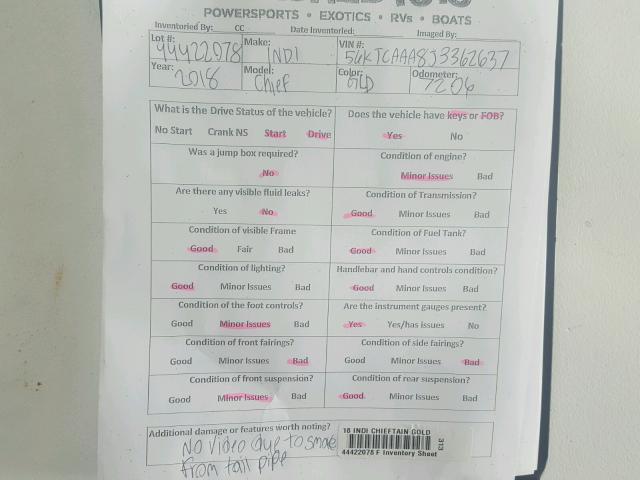 POWERSPORTS • EXOTICS • RVs • BOATS
Inventoried By: CC Date Inventoried: Imaged By:
Lot #: 44422078 Make: INDI VIN #: 56KTCAAA8J3362637
Year: 2018 Model: Chief Color: GLD Odometer: 7206
What is the Drive Status of the vehicle? Does the vehicle have keys or FOB?
No Start Crank NS Start Drive Yes No
Was a jump box required? Condition of engine?
No Minor Issues Bad
Are there any visible fluid leaks? Condition of Transmission?
Yes No Good Minor Issues Bad
Condition of visible Frame Condition of Fuel Tank?
Good Fair Bad Good Minor Issues Bad
Condition of lighting? Handlebar and hand controls condition?
Good Minor Issues Bad Good Minor Issues Bad
Condition of the foot controls? Are the instrument gauges present?
Good Minor Issues Bad Yes Yes/has issues No
Condition of front fairings? Condition of side fairings?
Good Minor Issues Bad Good Minor Issues Bad
Condition of front suspension? Condition of rear suspension?
Good Minor Issues Bad Good Minor Issues Bad
Additional damage or features worth noting? 18 INDI CHIEFTAIN GOLD
No video due to smoke 313
from tail pipe 44422078 F Inventory Sheet